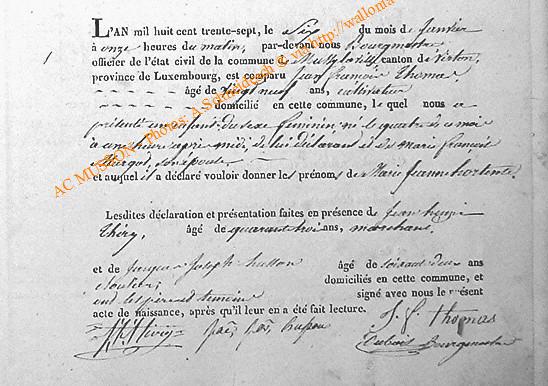 L'AN mil huit cent trente-sept, le Six du mois de Janvier
à onze heures du matin, par-devant nous Bourgmestre
officier de l'état civil de la commune de canton de Virton,
province de Luxembourg, est comparu Jean françois Thomas
âgé de vingt neuf ans, cultivateur
domicilié en cette commune, le quel nous a
présenté un enfant du sexe féminin né le quatre de ce mois
à une heure après midi, de lui déclarant et de Marie françoise
son épouse
et auquel il a déclaré vouloir donner les prénoms de Marie Jeanne hortense.
Lesdites déclaration et présentation faites en présence de Jean
thiry, âgé de quarante trois ans, marchand
et de Jacques Joseph husson âgé de soixante deux ans
cloutier, domiciliés en cette commune, et
ont les père et témoins signé avec nous le présent
acte de naissance, après qu'il leur en a été fait lecture.
J. f. thomas
Bourgmestre
AC MUSSON - Photos: A. Schmidt http://wallonia